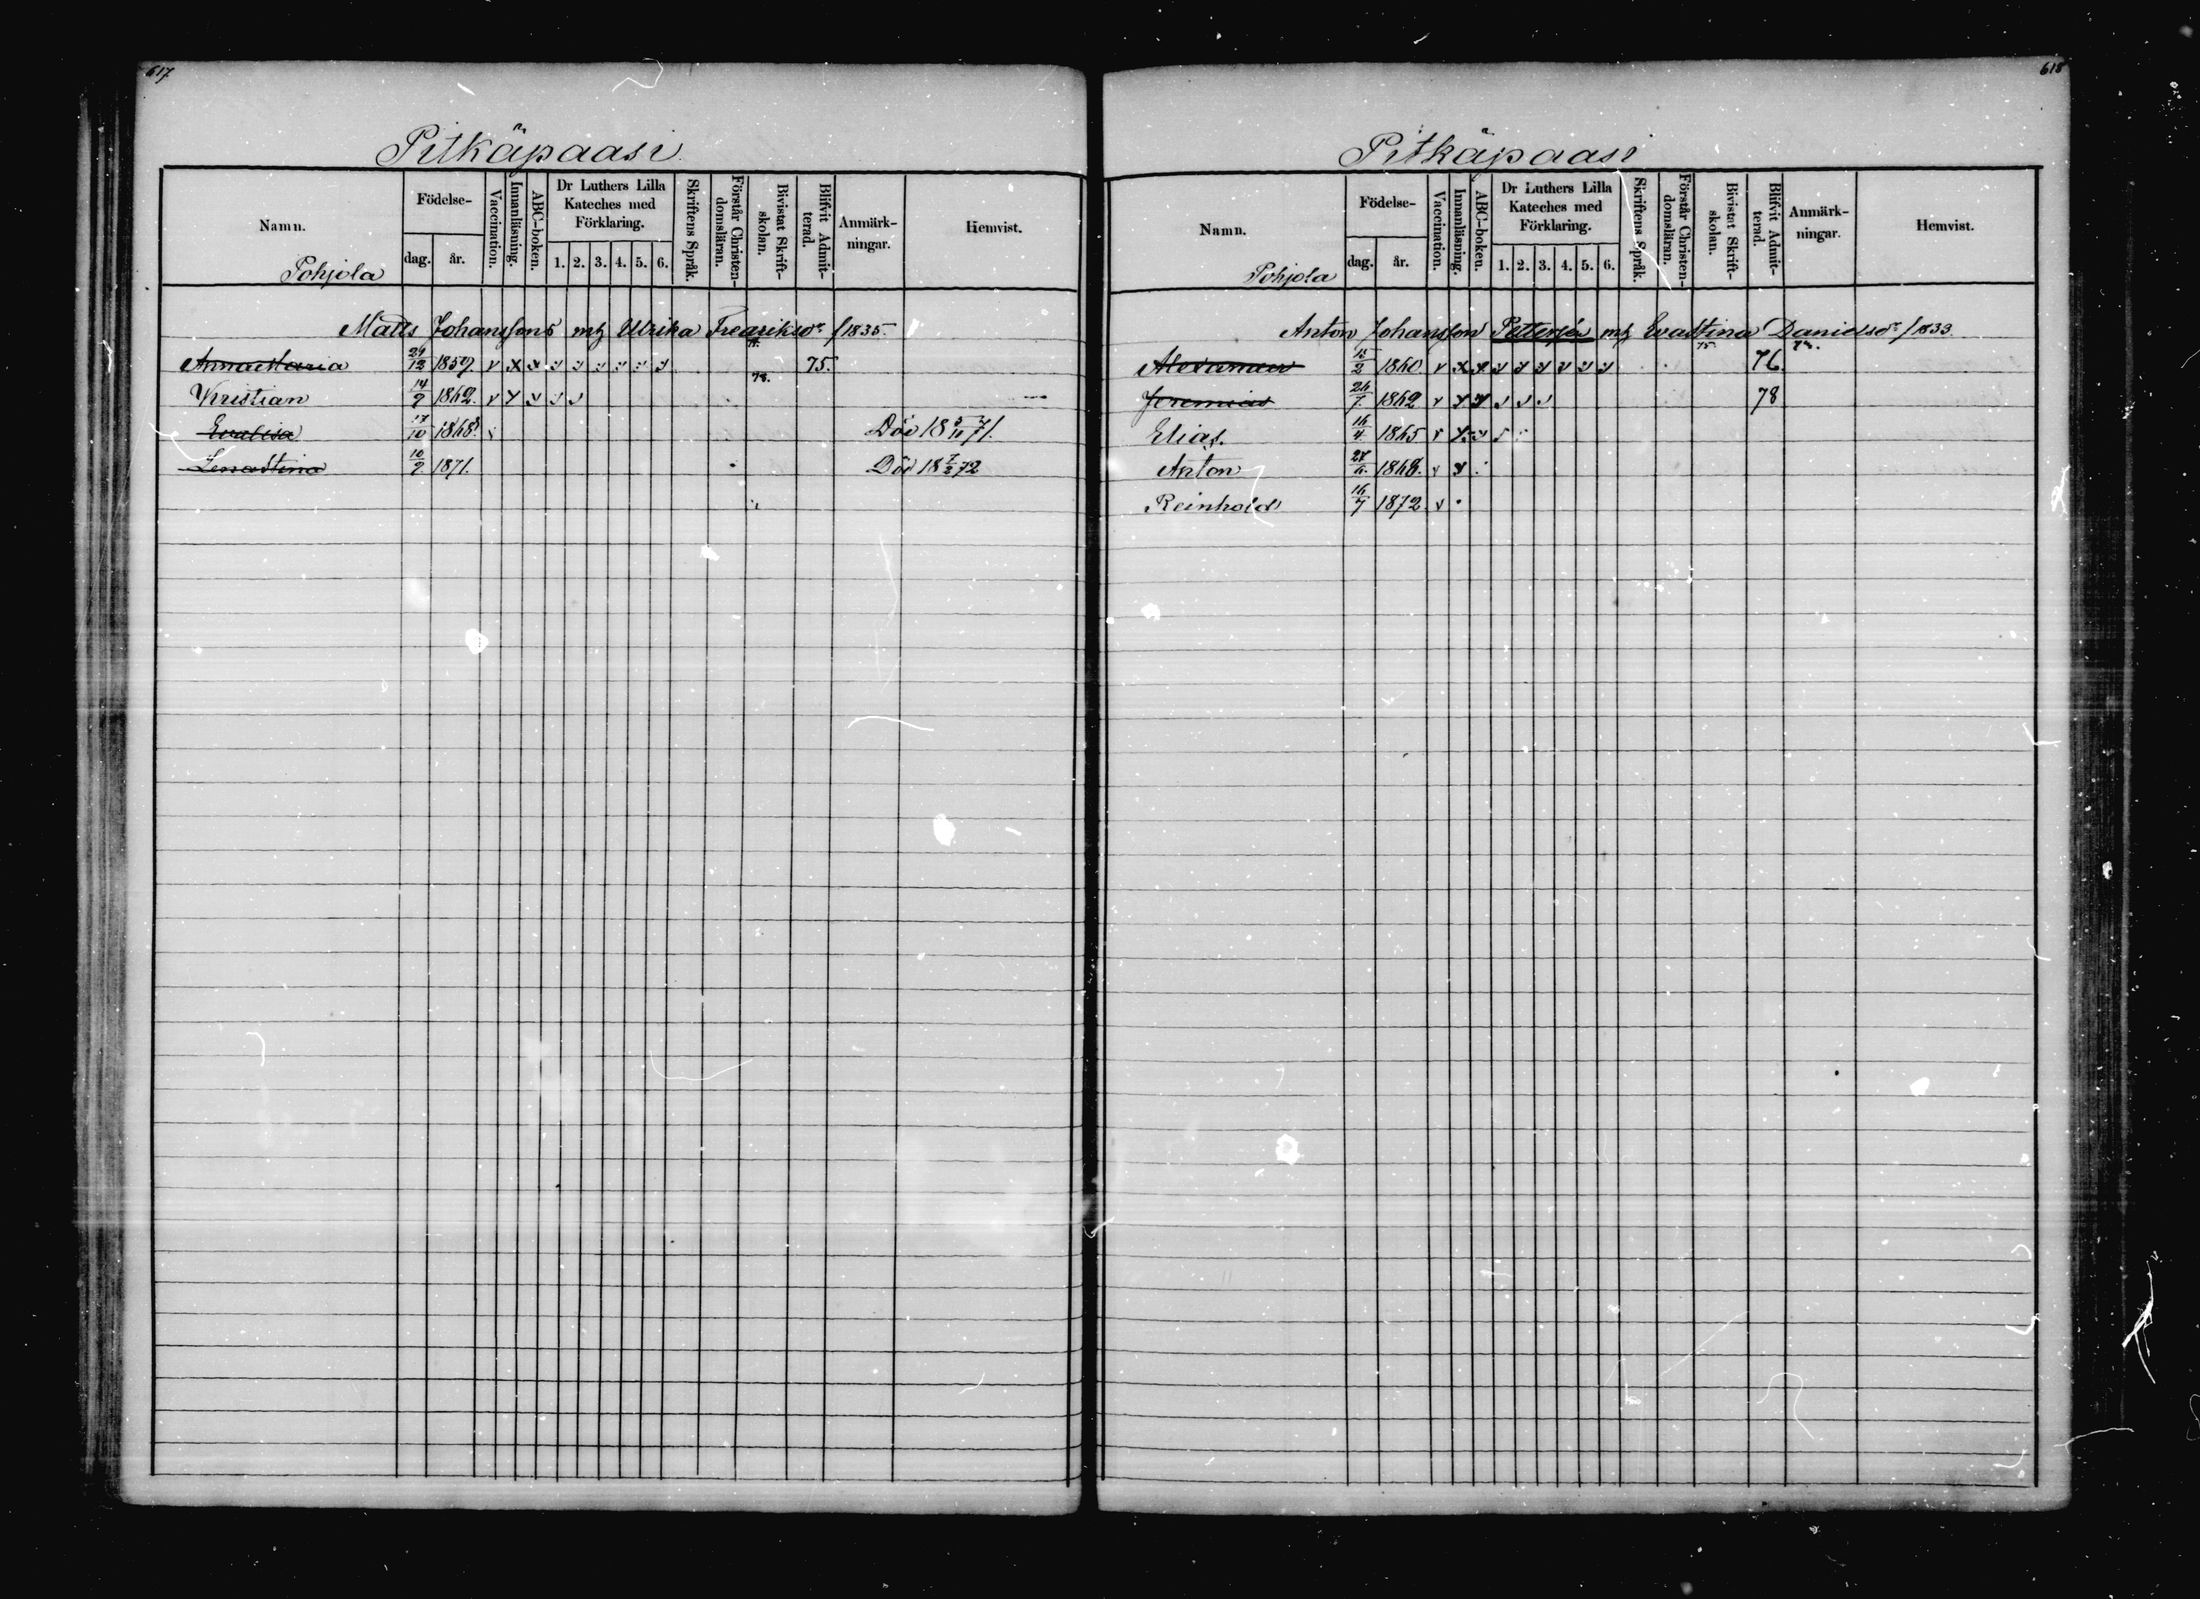 617
Pitkäpaasi
Namn.
Födelse-
dag. år.
Vaccination.
Innanläsning.
ABC-boken.
Dr Luthers Lilla
Kateches med
Förklaring.
1. 2. 3. 4. 5. 6.
Skriftens Språk.
Förstår Christen-
domsläran.
Bivistat Skrift-
skolan.
Blifvit Admit-
terad.
Anmärk-
ningar.
Hemvist.
Pohjola
Matts Johanssons Ulrika Fredriksdr /1835.
Anna Maria 24/12 1859. v x 75.
78.
Kristian 14/9 1862. v
Evalisa 17/10 1868. Död 18 5/11 71.
Lenastina 10/9 1871. Död 18 7/2 72
618
Pitkäpaasi
Namn.
Födelse-
dag. år.
Vaccination.
Innanläsning.
ABC-boken.
Dr Luthers Lilla
Kateches med
Förklaring.
1. 2. 3. 4. 5. 6.
Skriftens Språk.
Förstår Christen-
domsläran.
Bivistat Skrift-
skolan.
Blifvit Admit-
terad.
Anmärk-
ningar.
Hemvist.
Pohjola
Anton Johansson Evastina Danielsdr /1833.
75.
Alexander 15/2 1860 v x 76
Jeremias 26/7. 1862 v 78
Elias. 16/4 1865 v
Anton 1868. v
Reinhold 16/7 1872 v